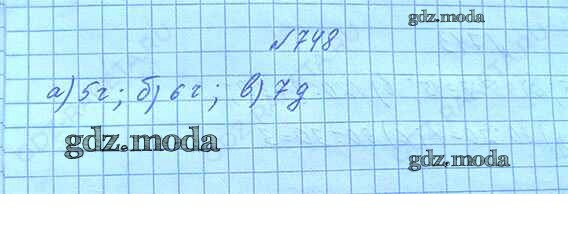 gdz.moda
№748
а) 5г; б) 6г; в) 7д
gdz.moda
gdz.moda